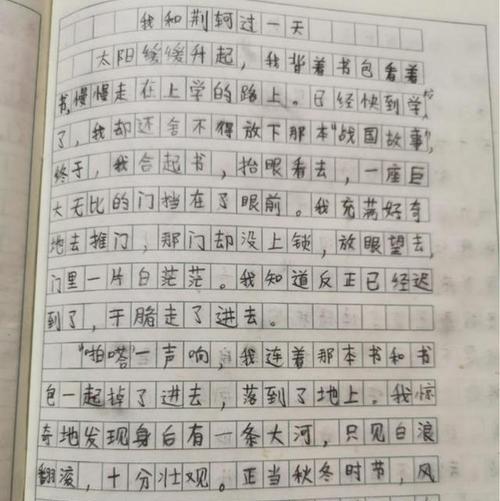 我和荆轲过一天
太阳缓缓升起，我背着书包看着
书，慢慢走在上学的路上。已经快到学校
了，我却还舍不得放下那本"战国故事"，
终于，我合起书，抬眼看去，一座巨
大无比的门挡在了眼前。我充满好奇
地去推门，那门却没上锁，放眼望去，
门里一片白茫茫。我知道反正已经迟
到了，干脆走了进去。
"啪嗒"一声响，我连着那本书和书
包一起掉了进去，落到了地上。我惊
奇地发现身后有一条大河，只见白浪
翻滚，十分壮观。正当秋冬时节，风